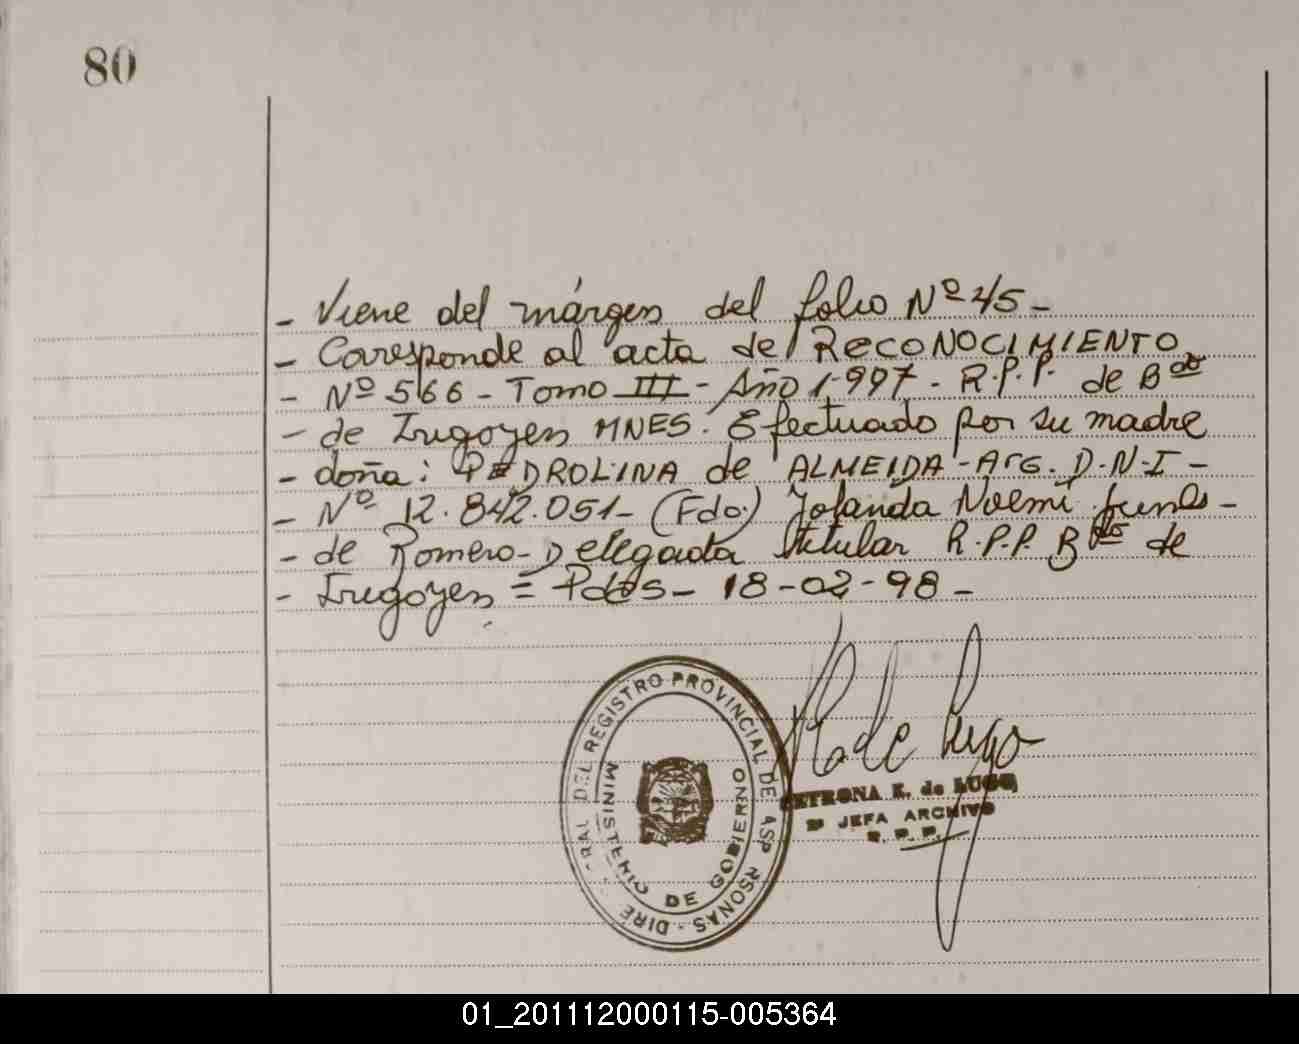 80
- Viene del márgen del folio Nº 45 -
- Corresponde al acta de RECONOCIMIENTO
- Nº 566 - Tomo III - Año 1.997 - R.P.P. de Bdo
- de Irigoyen MNES. Efectuado por su madre
- doña: PEDROLINA de ALMEIDA - Arg. D.N.I -
- Nº 12.842.051 - (Fdo.) Yolanda Noemi Funes -
- de Romero - Delegada titular R.P.P. Bdo de
- Irigoyen = Pdas - 18-02-98 -
DEL REGISTRO PROVINCIAL DE
MINISTERIO DE GOBIERNO
PETRONA K. de LUGO
JEFA ARCHIVO
R. P. P.
01_201112000115-005364